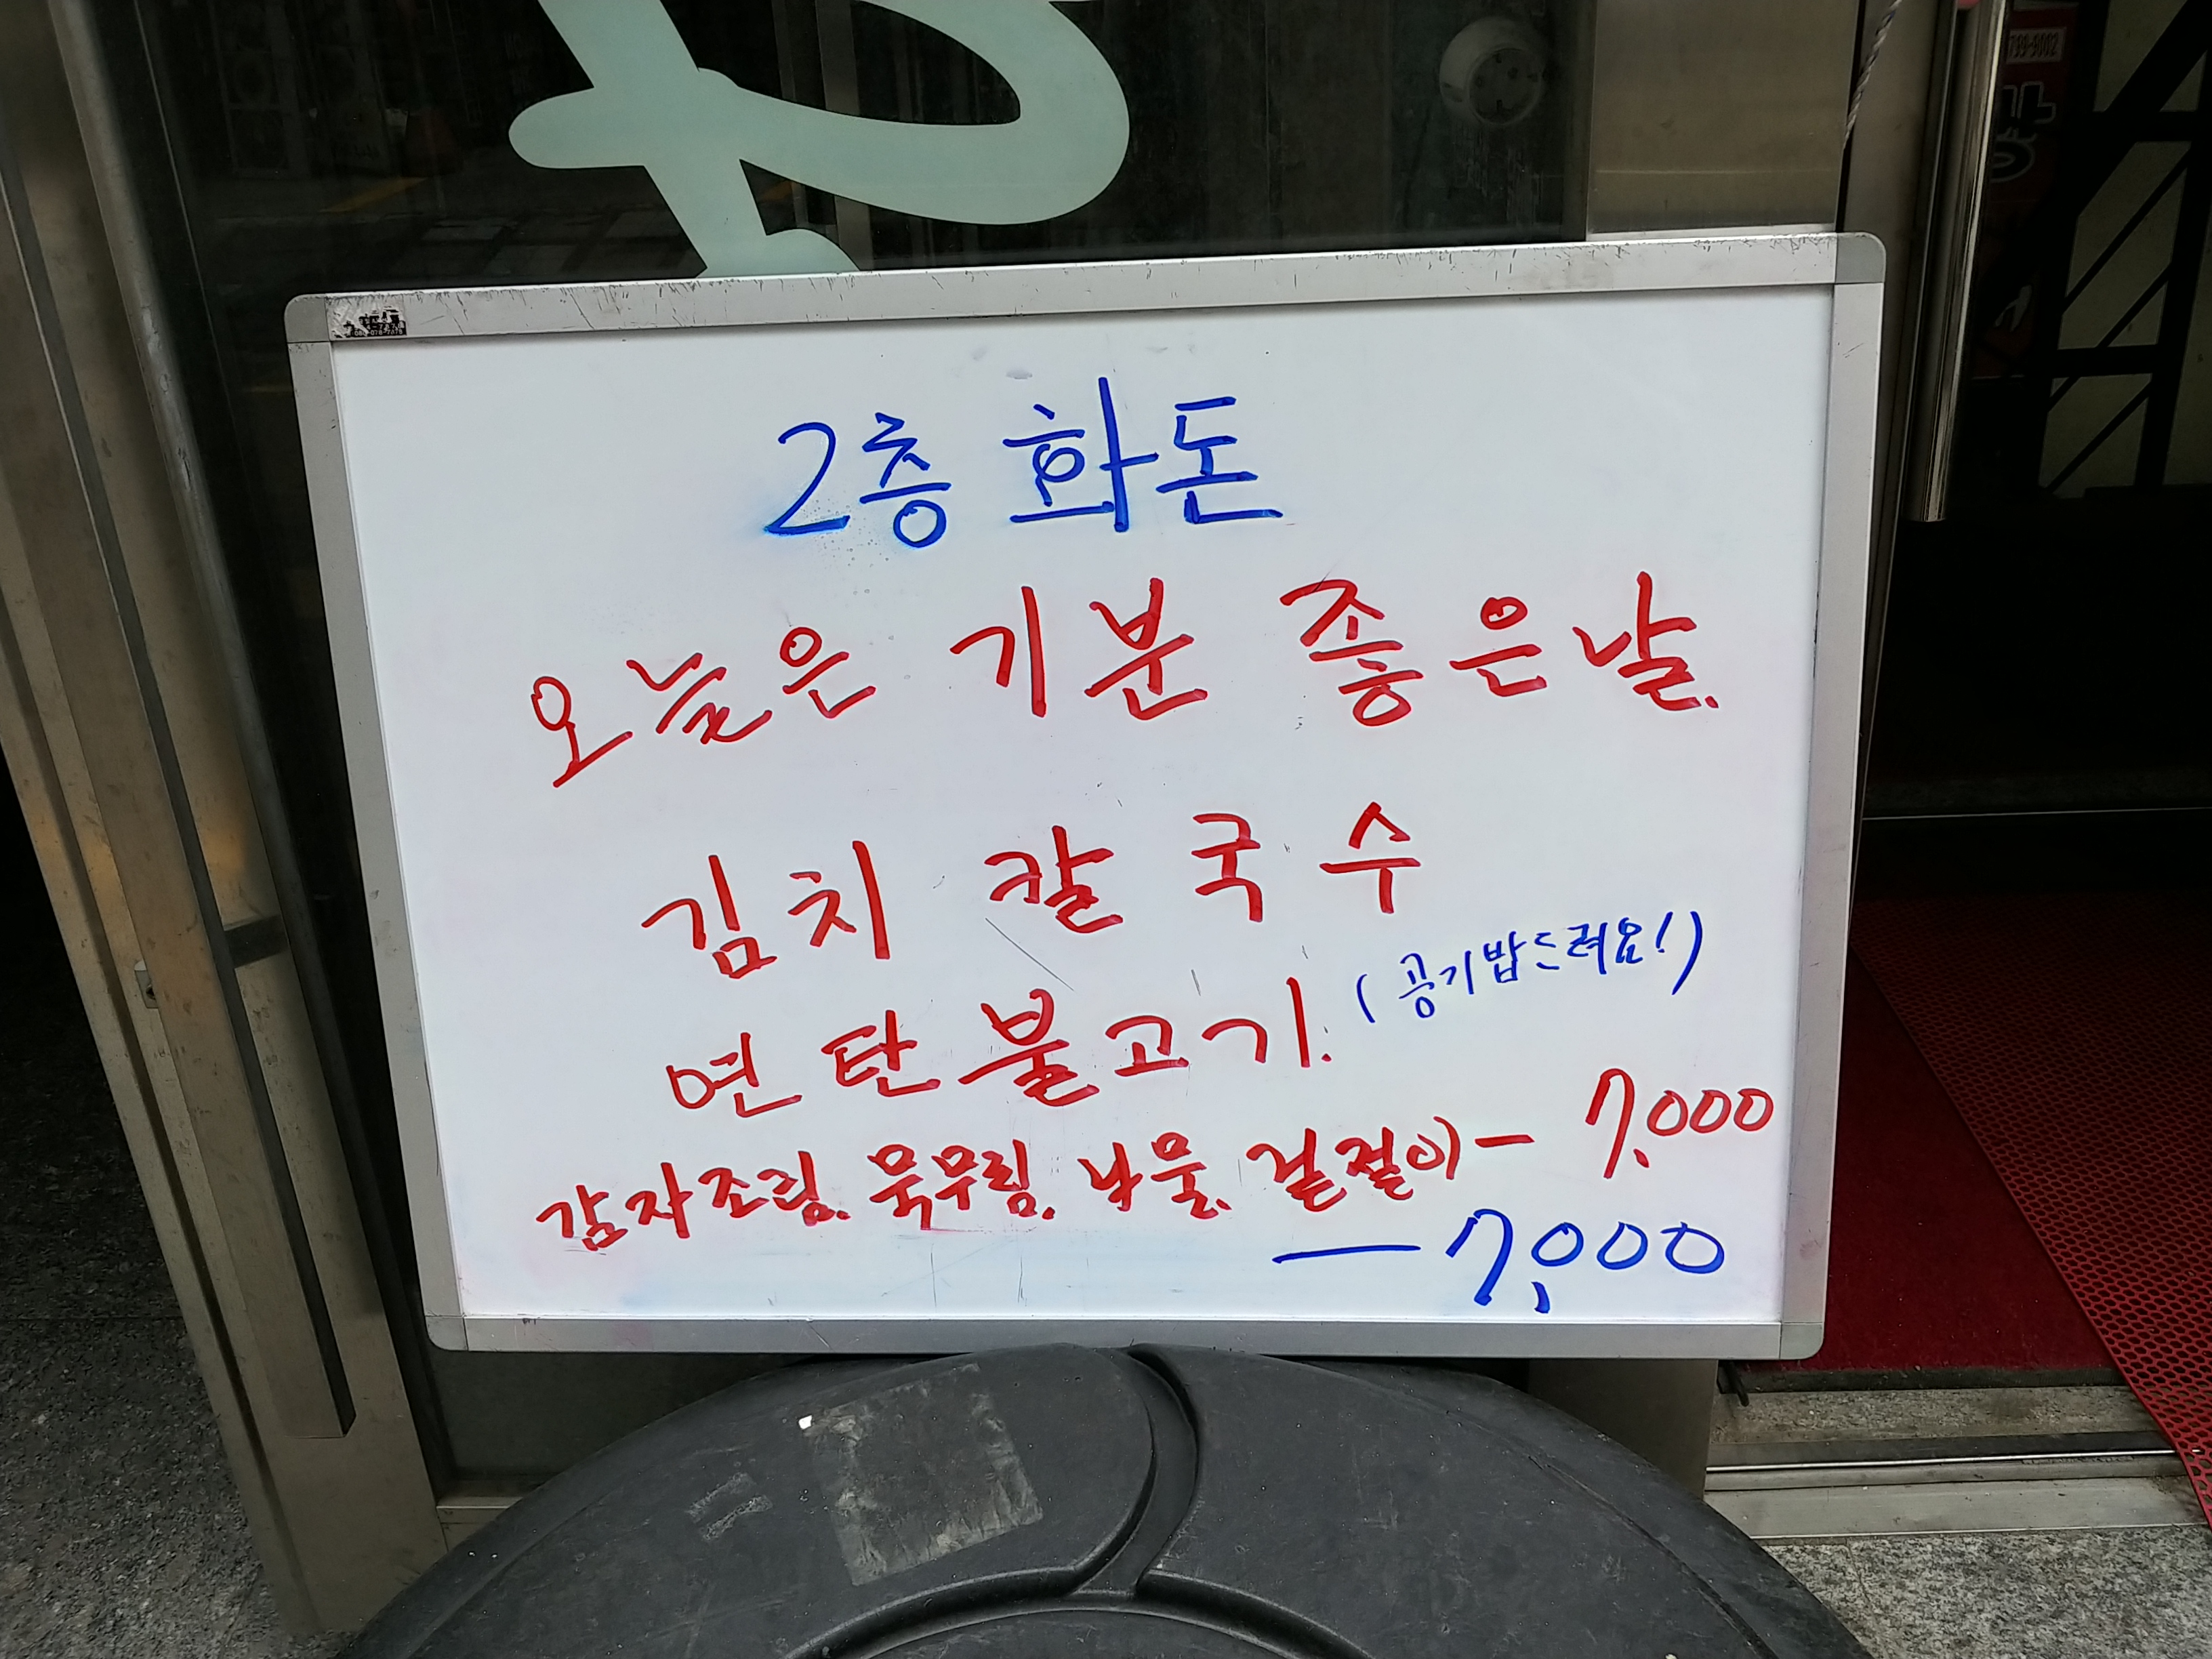 2층 화돈
오늘은 기분 좋은 날.
김치 칼국수
(공기밥드려요!)
연탄불고기.
감자조림. 묵무림. 나물. 겉절이 — 7,000
— 7,000
799-9002